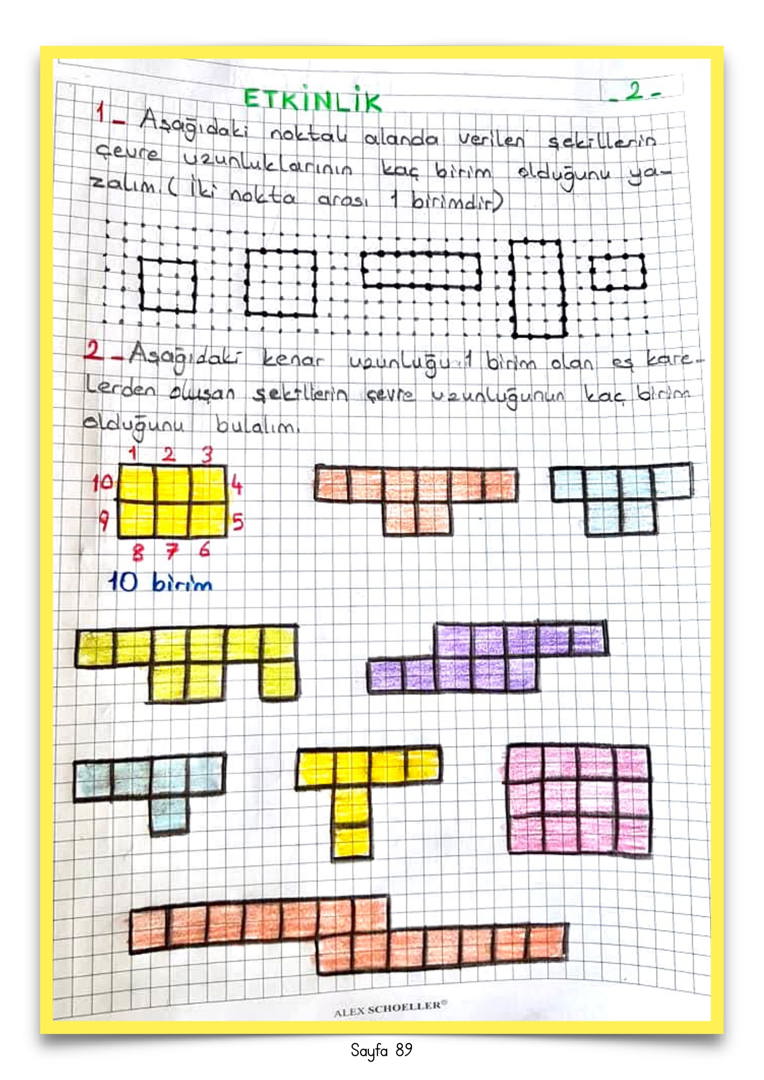 ETKİNLİK
- 2 -
1- Aşağıdaki noktalı alanda verilen şekillerin
çevre uzunluklarının kaç birim olduğunu ya-
zalım. ( İki nokta arası 1 birimdir)
2- Aşağıdaki kenar uzunluğu 1 birim olan eş kare-
lerden oluşan şekillerin çevre uzunluğunun kaç birim
olduğunu bulalım.
1 2 3
10 4
9 5
8 7 6
10 birim
ALEX SCHOELLER®
Sayfa 89